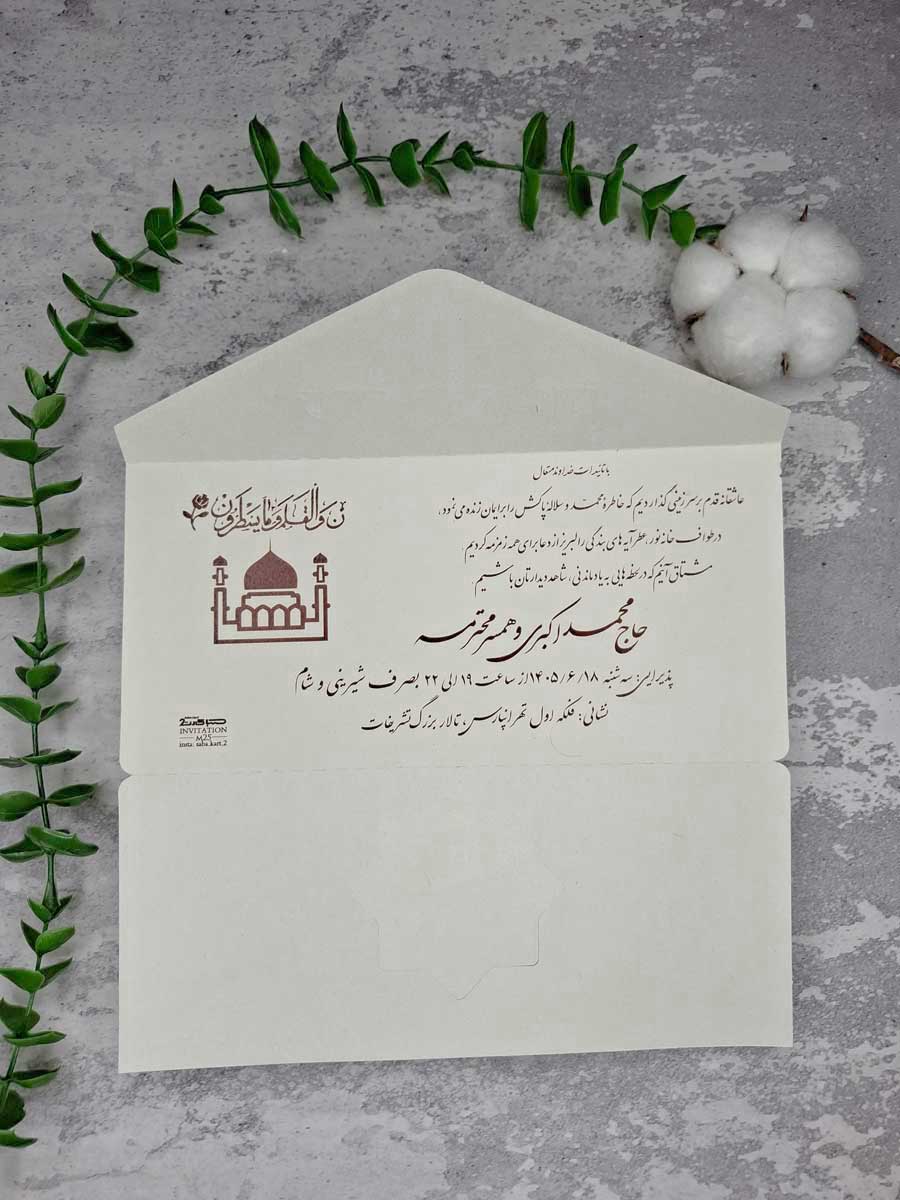 با تائیدات خداوند متعال
عاشقانه قدم بر سرزمینی گذاردیم که خاطره محمد و سلاله پاکش را برایمان زنده می نمود،
در طواف خانه نور، عطر آیه های بندگی را لبریز از دعا برای همه زمزمه کردیم.
مشتاق آنیم که در لحظه هایی به یاد ماندنی، شاهد دیدارتان باشیم.
حاج محمد اکبری و همسر محترمه
پذیرایی: سه شنبه ۱۴۰۵/۶/۱۸ از ساعت ۱۹ الی ۲۲ بصرف شیرینی و شام
نشانی: فلکه اول تهرانپارس، تالار بزرگ تشریفات
ن والقلم وما یسطرون
صبا کارت 2
INVITATION
M25
insta: saba_kart_2